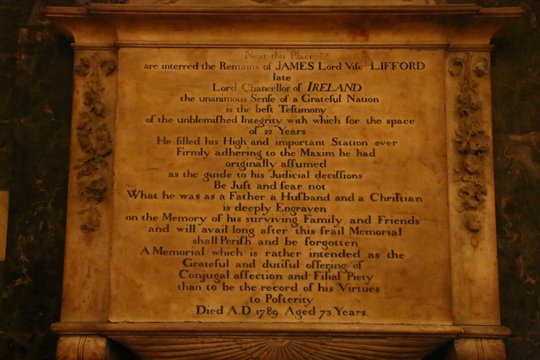 Near this Place
are interred the Remains of JAMES Lord Visc.^t LIFFORD
late
Lord Chancellor of IRELAND
the unanimous Sense of a Grateful Nation
is the best Testimony
of the unblemished Integrity with which for the space
of 22 Years
He filled his High and important Station ever
Firmly adhering to the Maxim he had
originally assumed
as the guide to his Judicial decissions
Be Just and fear not
What he was as a Father a Husband and a Christian
is deeply Engraven
on the Memory of his surviving Family and Friends
and will avail long after this frail Memorial
shall Perish and be forgotten
A Memorial which is rather intended as the
Grateful and dutiful offering of
Conjugal affection and Filial Piety
than to be the record of his Virtues
to Posterity
Died A.D 1789 Aged 73 Years.